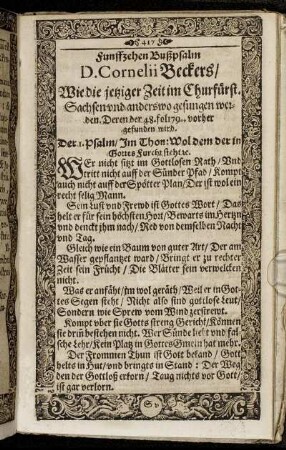 417
Funffzehen Bußpsalm
D. Cornelii Beckers/
Wie die jetziger Zeit im Churfürst.
Sachsen vnd anderswo gesungen wer-
den. Deren der 48. fol. 179. vorher
gefunden wird.
Der 1. Psalm/ Im Thon: Wol dem der in
Gottes Furcht steht ꝛc.
WEr nicht sitzt im Gottlosen Rath/ Vnd
tritt nicht auff der Sünder Pfad/ Kompt
auch nicht auff der Spötter Plan/ Der ist wol ein
recht selig Mann.
Sein Lust vnd Frewd ist Gottes Wort/ Das
helt er für sein höchsten Hort/ Bewarts im Hertzn
vnd denckt jhm nach/ Red von demselben Nacht
vnd Tag.
Gleich wie ein Baum von guter Art/ Der am
Wasser gepflantzet ward/ Bringt er zu rechter
Zeit sein Frücht/ Die Blätter sein verwelcken
nicht.
Was er anfäht/ jm wol geräth/ Weil er in Got-
tes Segen steht/ Nicht also sind gottlose Leut/
Sondern wie Sprew vom Wind zerstrewt.
Kompt vber sie Gotts streng Gericht/ Können
sie drü bestehen nicht. Wer Sünde liebt vnd fal-
sche Lehr/ Kein Platz in Gottes Gmein hat mehr.
Der Frommen Thun ist Gott bekand/ Gott
helts in Hut/ vnd bringts in Stand: Der Weg
den der Gottloß erkorn/ Taug nichts vor Gott/
ist gar verlorn.
S v